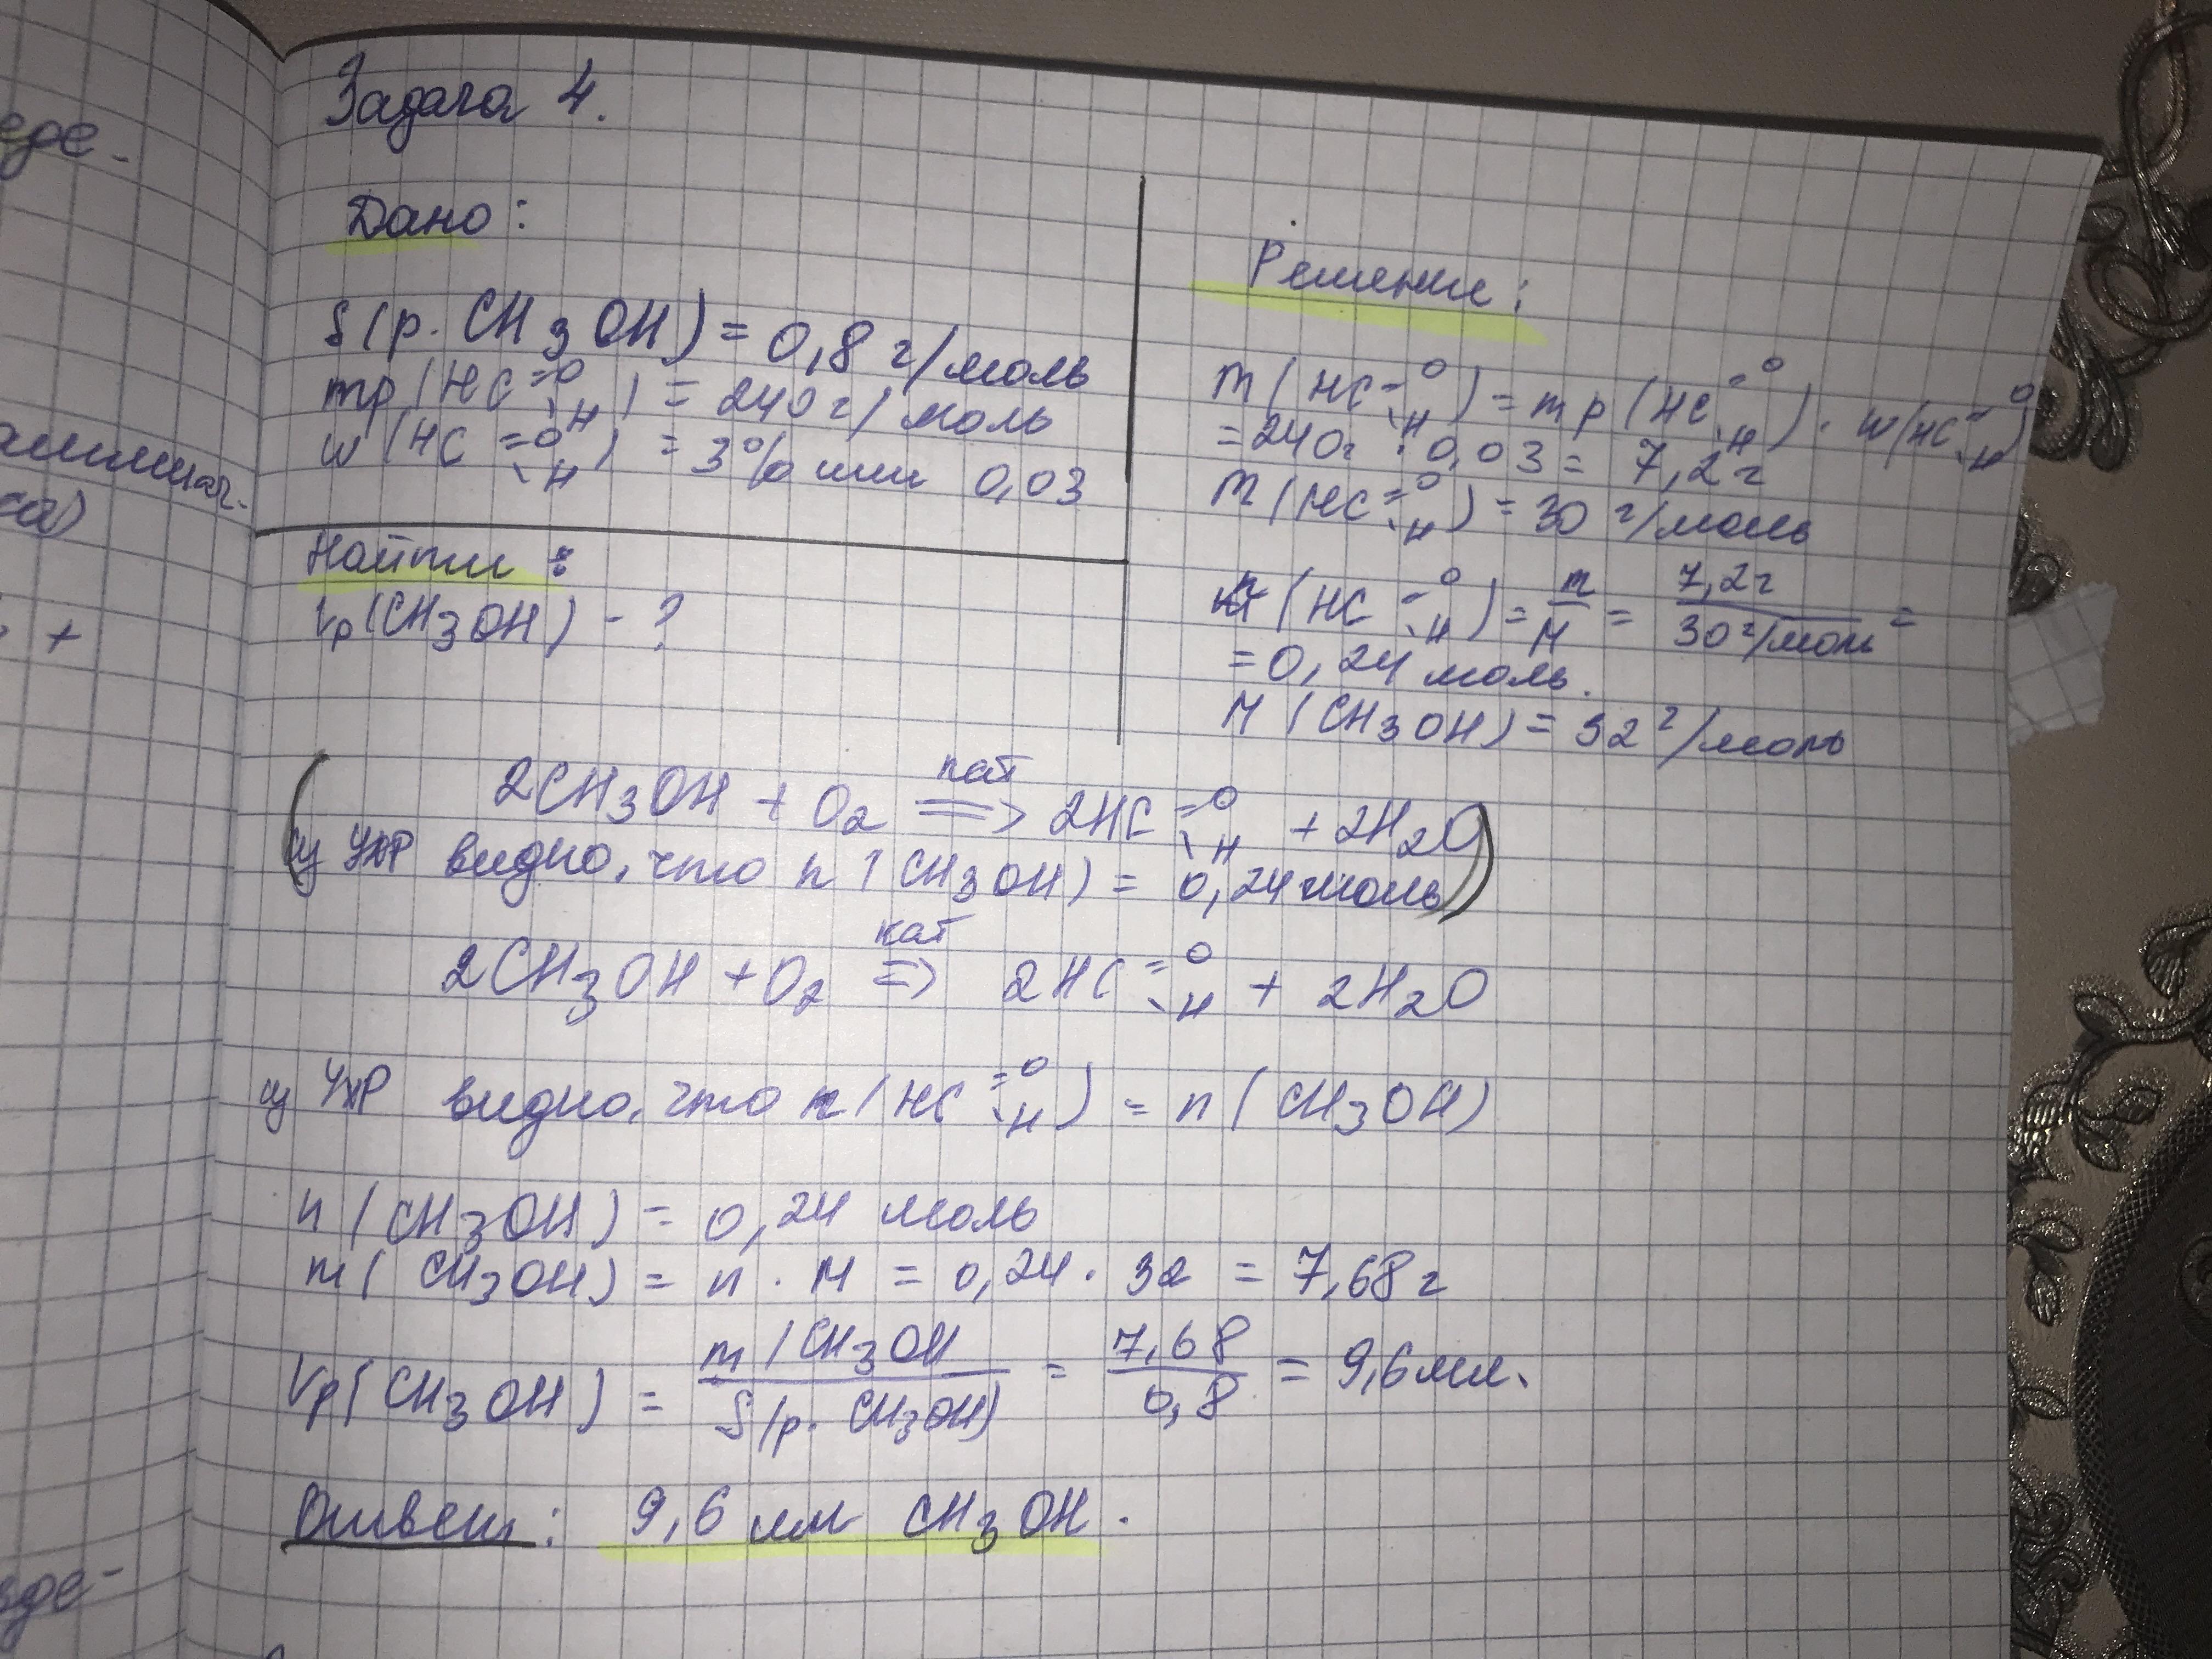 Задача 4.
Дано:
ρ(р. CH3OH) = 0,8 г/моль
mр(HC=O-H) = 240 г/моль
w(HC=O-H) = 3% или 0,03
Найти:
Vр(CH3OH) - ?
Решение:
m(HC=O-H) = mр(HC=O-H) · w(HC=O-H)
= 240г · 0,03 = 7,2 г
M(HC=O-H) = 30 г/моль
n(HC=O-H) = m/M = 7,2г/30 г/моль =
= 0,24 моль.
M(CH3OH) = 32 г/моль
(2CH3OH + O2 кат => 2HC=O-H + 2H2O
из УХР видно, что n(CH3OH) = 0,24 моль)
2CH3OH + O2 кат => 2HC=O-H + 2H2O
из УХР видно, что n(HC=O-H) = n(CH3OH)
n(CH3OH) = 0,24 моль
m(CH3OH) = n · M = 0,24 · 32 = 7,68 г
Vр(CH3OH) = m(CH3OH/ρ(р. CH3OH) = 7,68/0,8 = 9,6 мл.
Ответ: 9,6 мл CH3OH.